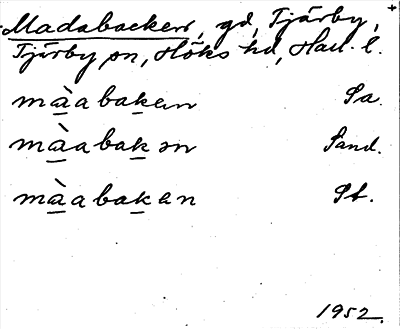 Madabacken, gd, Tjärby,
Tjärby sn, Höks hd, Hall. l.
màabaken Sa.
màabakən Sand.
màabakən St.
1952.